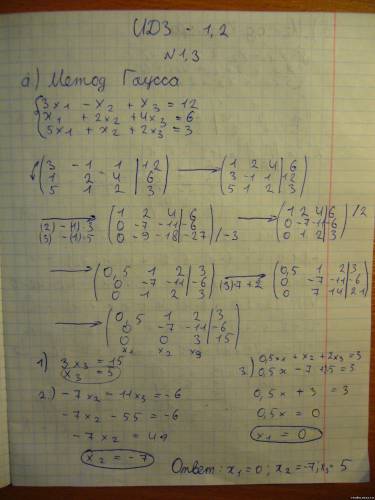 ИДЗ - 1,2
N 1,3
а) Метод Гаусса
{3x1 - x2 + x3 = 12
x1 + 2x2 + 4x3 = 6
5x1 + x2 + 2x3 = 3
(3 -1 1 | 12
1 2 4 | 6
5 1 2 | 3) → (1 2 4 | 6
3 -1 1 | 12
5 1 2 | 3)
(2) - (1)·3
(3) - (1)·5 → (1 2 4 | 6
0 -7 -11 | -6
0 -9 -18 | -27) /-3 → (1 2 4 | 6
0 -7 -11 | -6
0 1 2 | 3) /2
→ (0,5 1 2 | 3
0 -7 -11 | -6
0 1 2 | 3) (3)·7+2 → (0,5 1 2 | 3
0 -7 -11 | -6
0 7 14 | 21)
→ (0,5 1 2 | 3
0 -7 -11 | -6
0 0 3 | 15)
x1 x2 x3
1) 3x3 = 15
x3 = 5
2.) -7x2 - 11x3 = -6
-7x2 - 55 = -6
-7x2 = 49
x2 = -7
3.) 0,5x1 + x2 + 2x3 = 3
0,5x + 3 = 3
0,5x = 0
x1 = 0
Ответ: x1 = 0; x2 = -7; x3 = 5